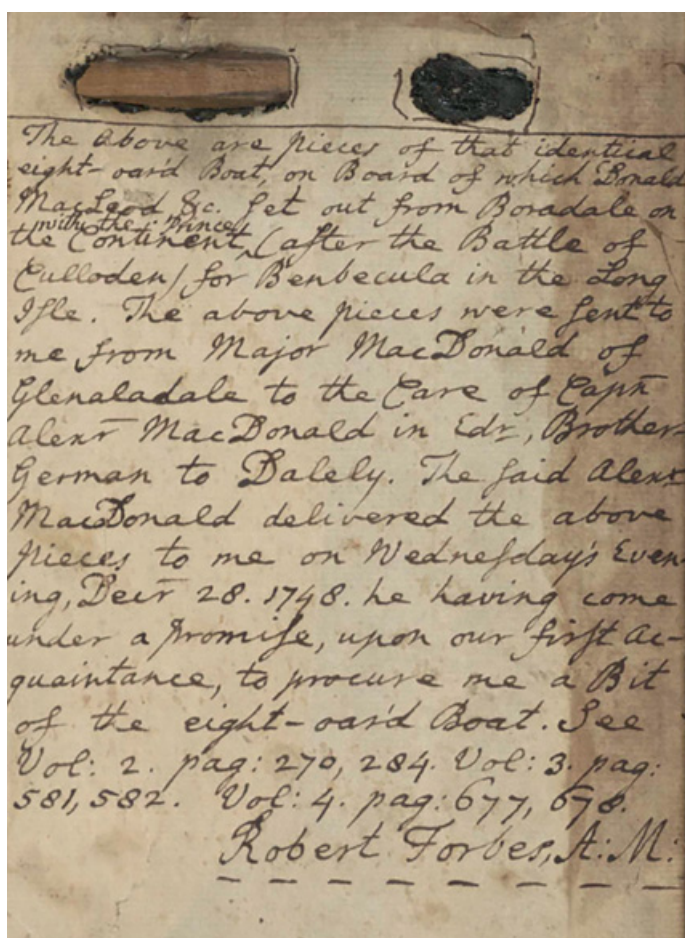 The Above are pieces of that identical
eight-oar'd Boat, on Board of which Donald
MacLeod &c. ſet out from Boradale on
with the Prince
the Continent, (after the Battle of
Culloden) for Benbecula in the Long
Iſle. The above pieces were ſent to
me from Major MacDonald of
Glenaladale to the Care of Capn
Alexr MacDonald in Edr, Brother-
German to Dalely. The ſaid Alexr
MacDonald delivered the above
pieces to me on Wedneſday's Even-
ing, Decr 28. 1748. he having come
under a promiſe, upon our firſt Ac-
quaintance, to procure me a Bit
of the eight-oar'd Boat. See
Vol: 2. pag: 270, 284. Vol: 3. pag:
581, 582. Vol: 4. pag: 677, 678.
Robert Forbes, A: M: